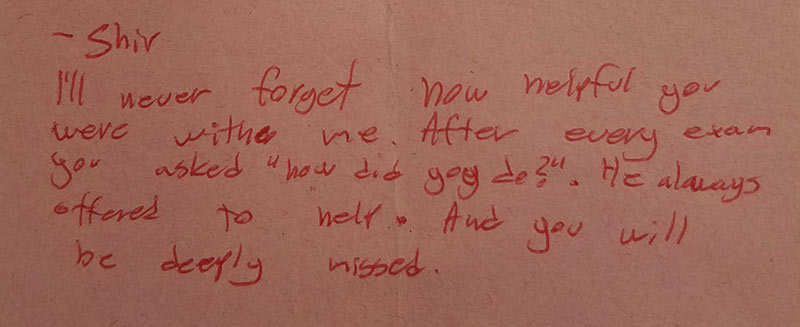 - Shiv
I'll never forget how helpful you
were with me. After every exam
you asked "how did you do?". He always
offered to help. And you will
be deeply missed.